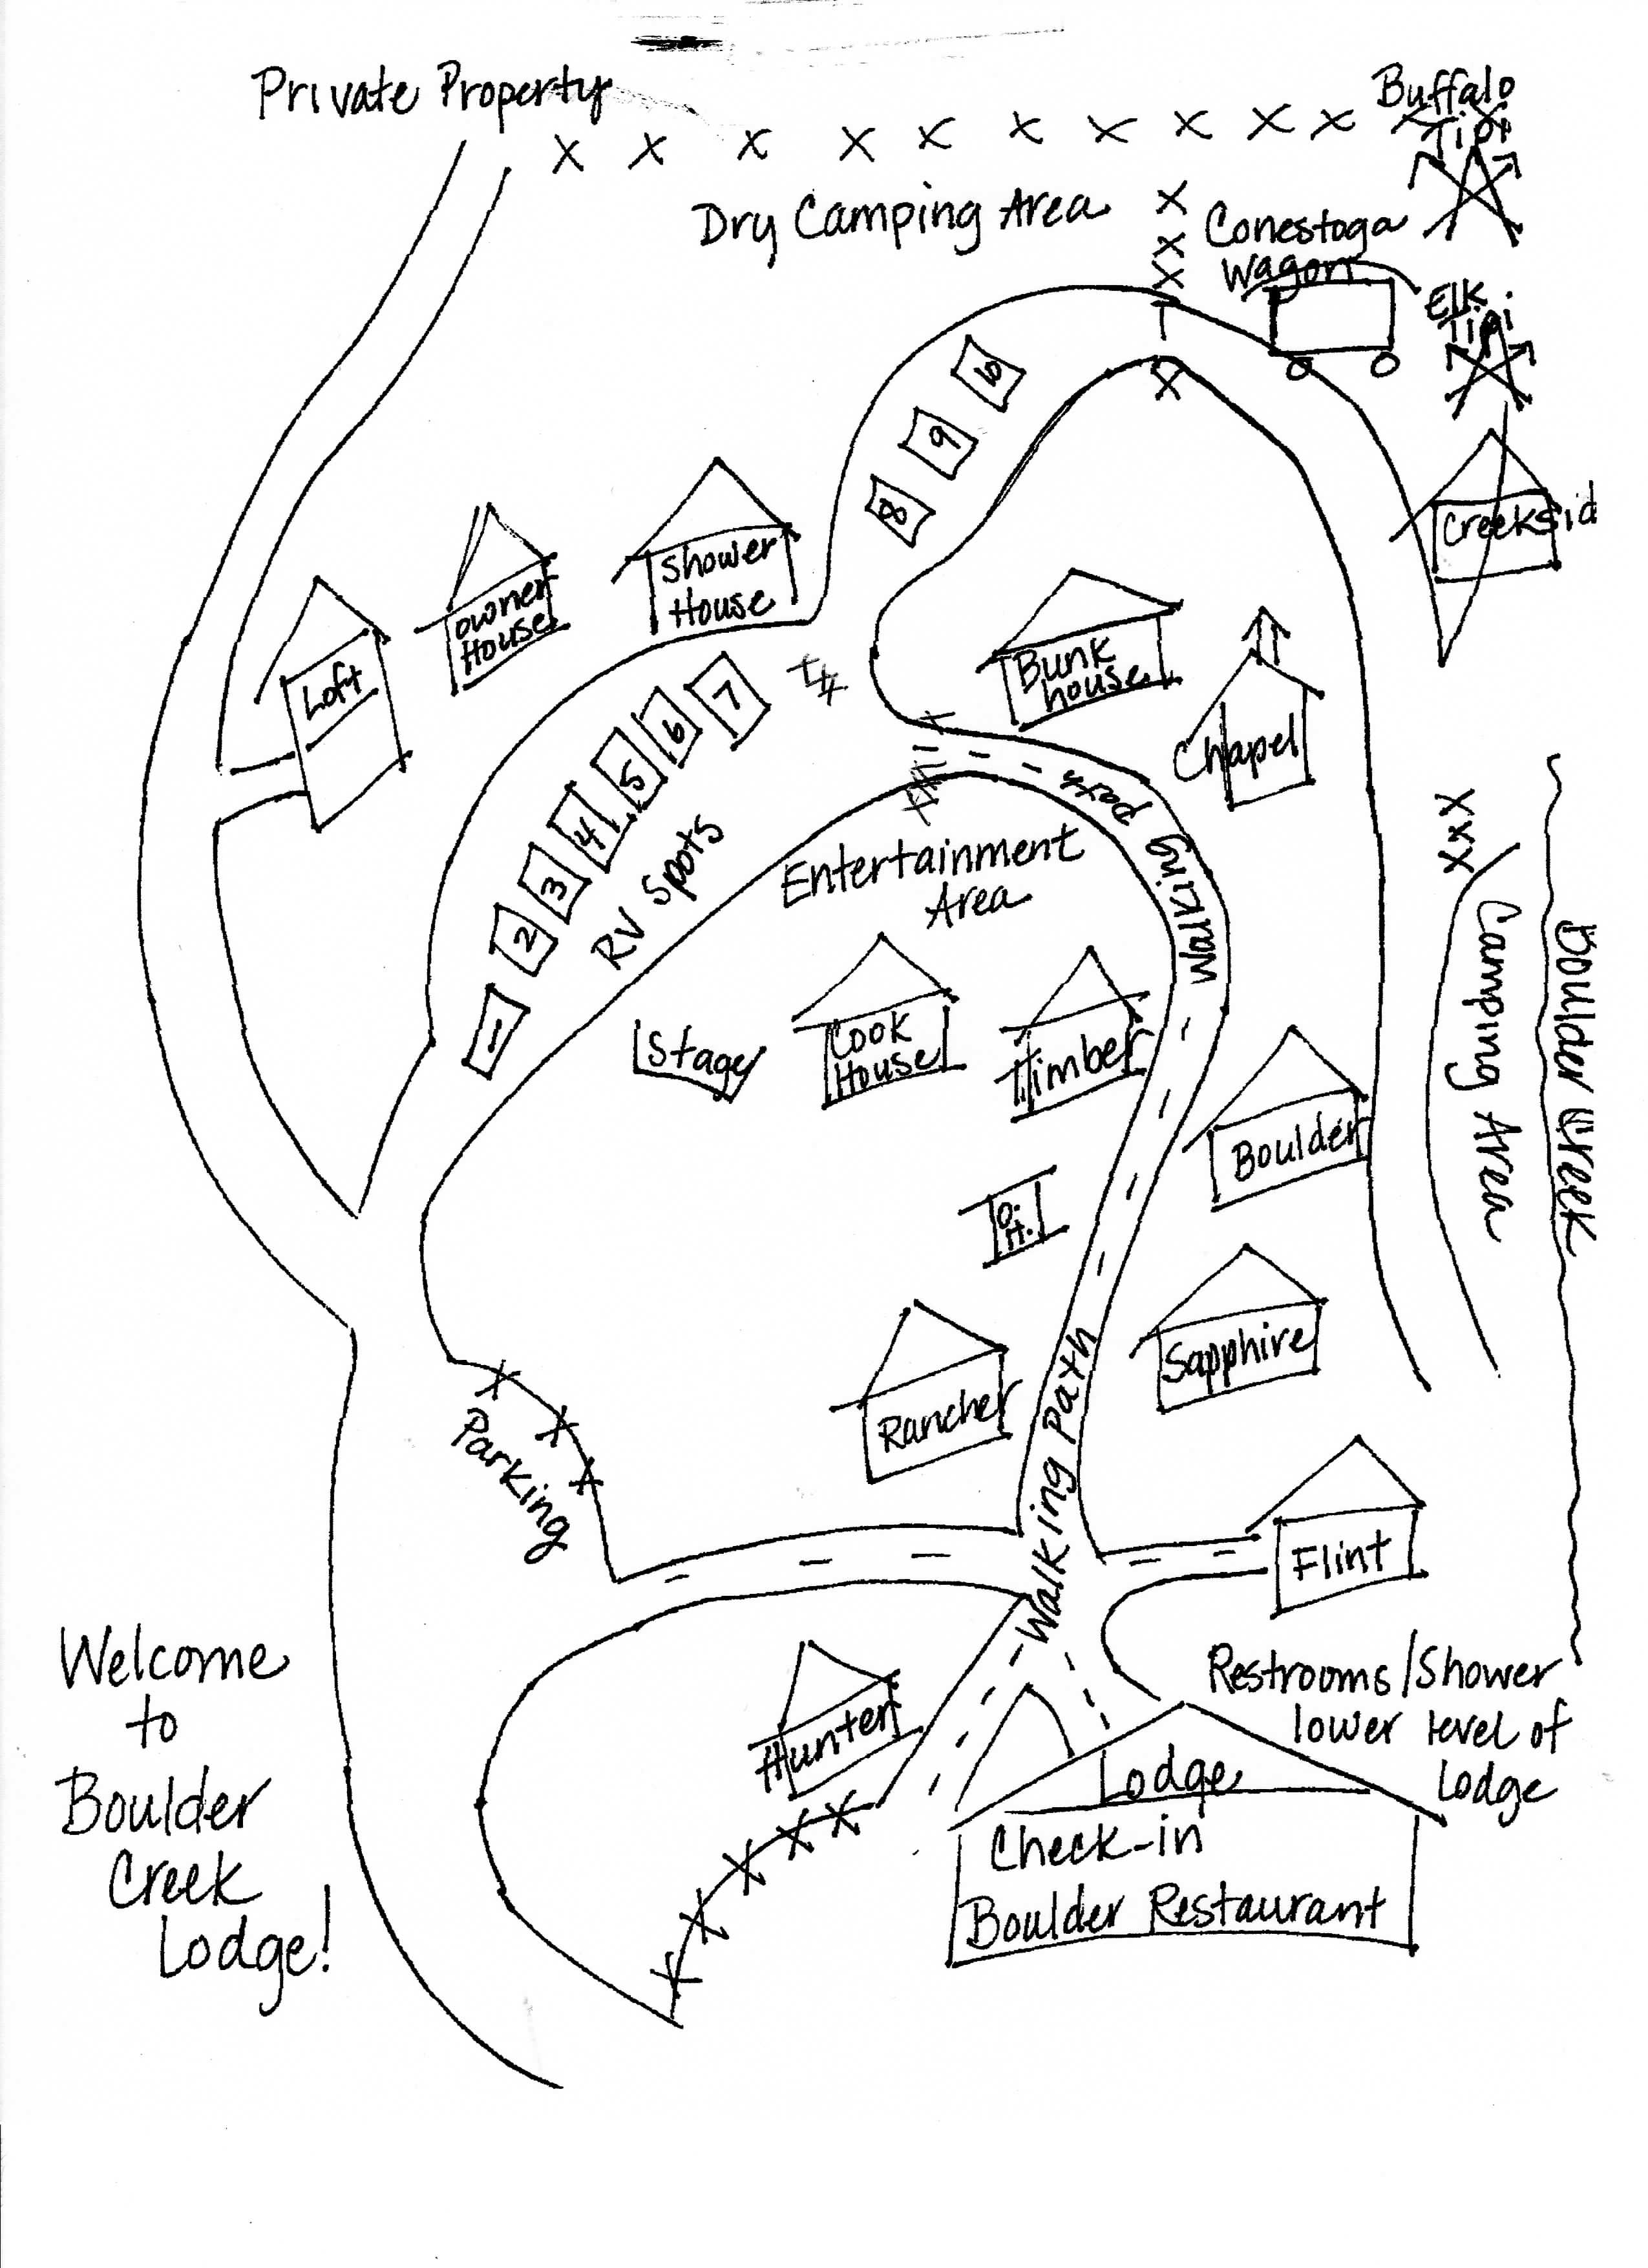 Private Property
Buffalo
Tipi
Dry Camping Area
Conestoga
Wagon
Elk
Tipi
10
9
8
Creeksid
Shower
House
owner
House
Loft
Bunk
house
Chapel
7
6
5
4
3
2
1
RV Spots
Walking path
Entertainment
Area
Stage
Cook
House
Timber
Boulder
Camping Area
Boulder Creek
O.H.
Sapphire
Rancher
Walking Path
Parking
Flint
Hunter
Restrooms/Shower
lower level of
Lodge
Lodge
Check-in
Boulder Restaurant
Welcome
to
Boulder
Creek
Lodge!